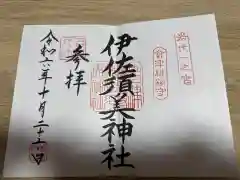 岩代一之宮
會津總鎮守
伊佐須美神社
参拝
令和六年十月二十日